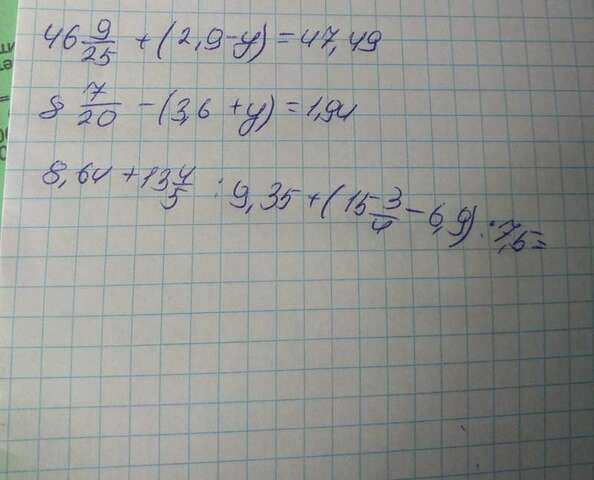 46 9/25 + (2,9-y) = 47,49
8 7/20 - (3,6 + y) = 1,94
8,64 + 13 4/5 : 9,35 + (15 3/4 - 6,9) : 7,5 =